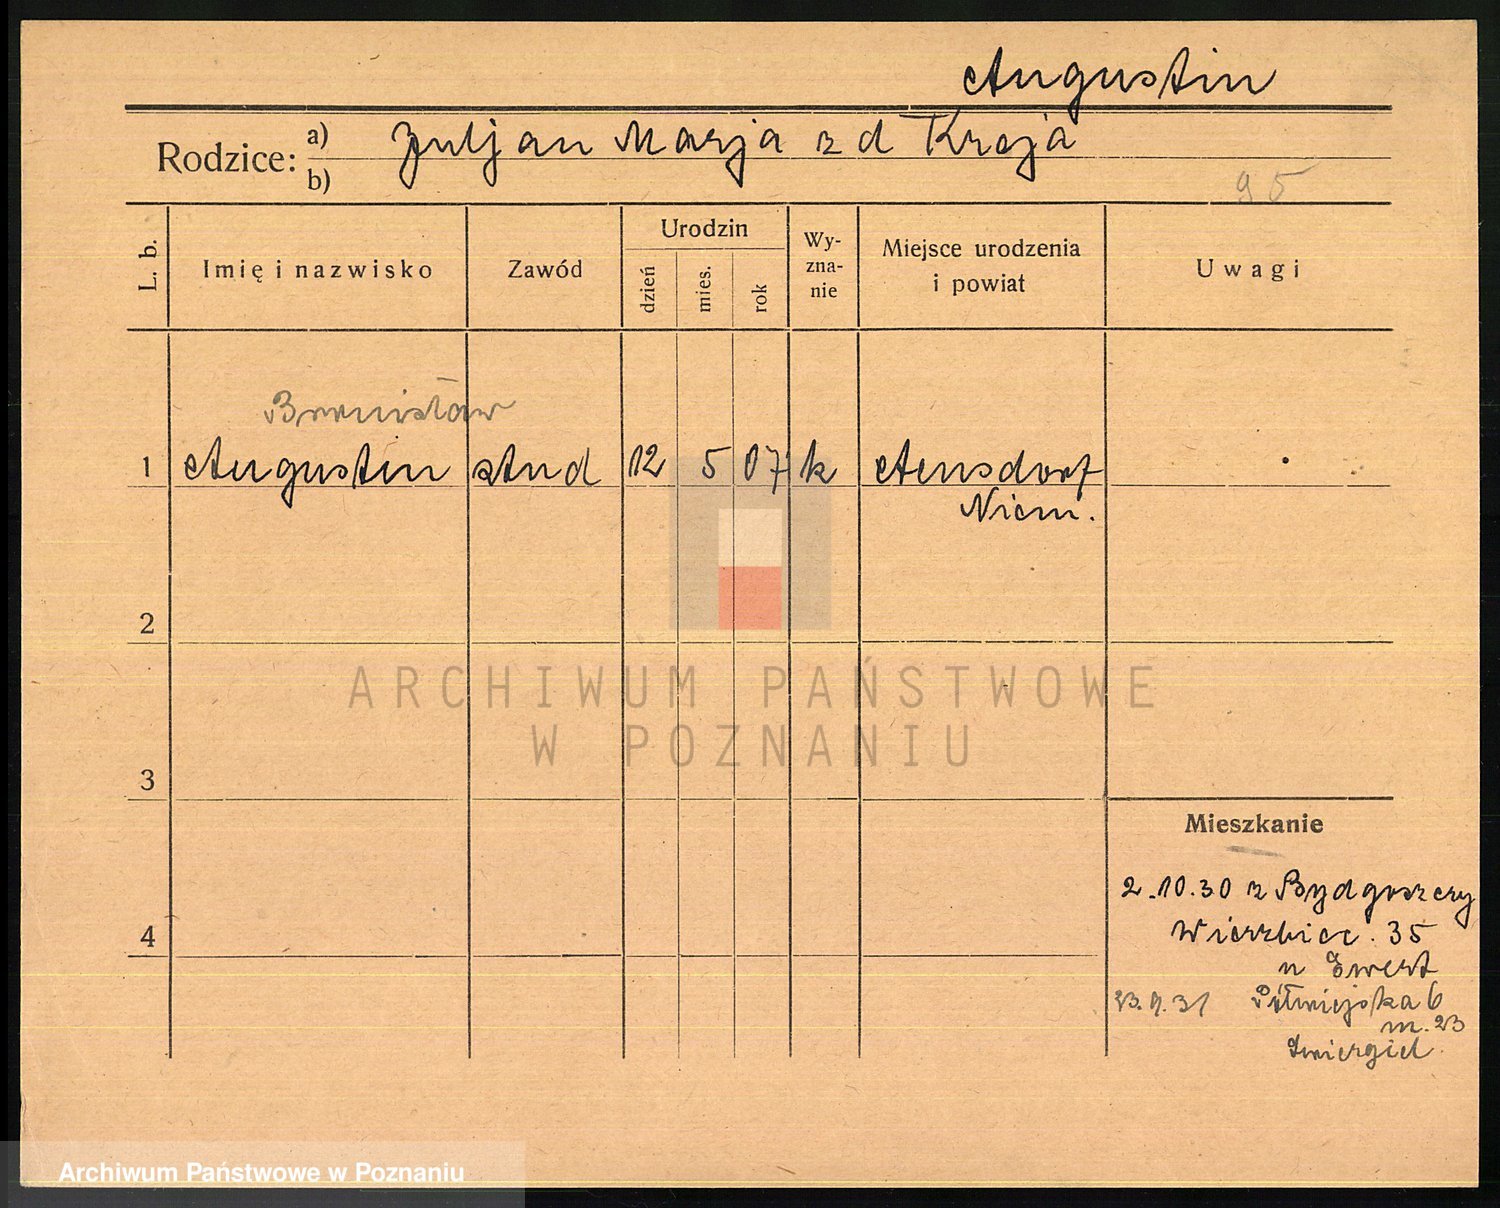 Augustin
Rodzice: a) Juljan Marja z d Kreja
b)
95
L. b.
Imię i nazwisko
Zawód
Urodzin
dzień
mies.
rok
Wy-
zna-
nie
Miejsce urodzenia
i powiat
Uwagi
Bronisław
1 Augustin stud 12 5 07 k Aensdorf
Niem.
2
ARCHIWUM PAŃSTWOWE
W POZNANIU
3
Mieszkanie
2.10.30 z Bydgoszczy
4 Wierzbięc. 35
u Ewert
23.9.31 Półwiejska 6
m. 23
Archiwum Państwowe w Poznaniu